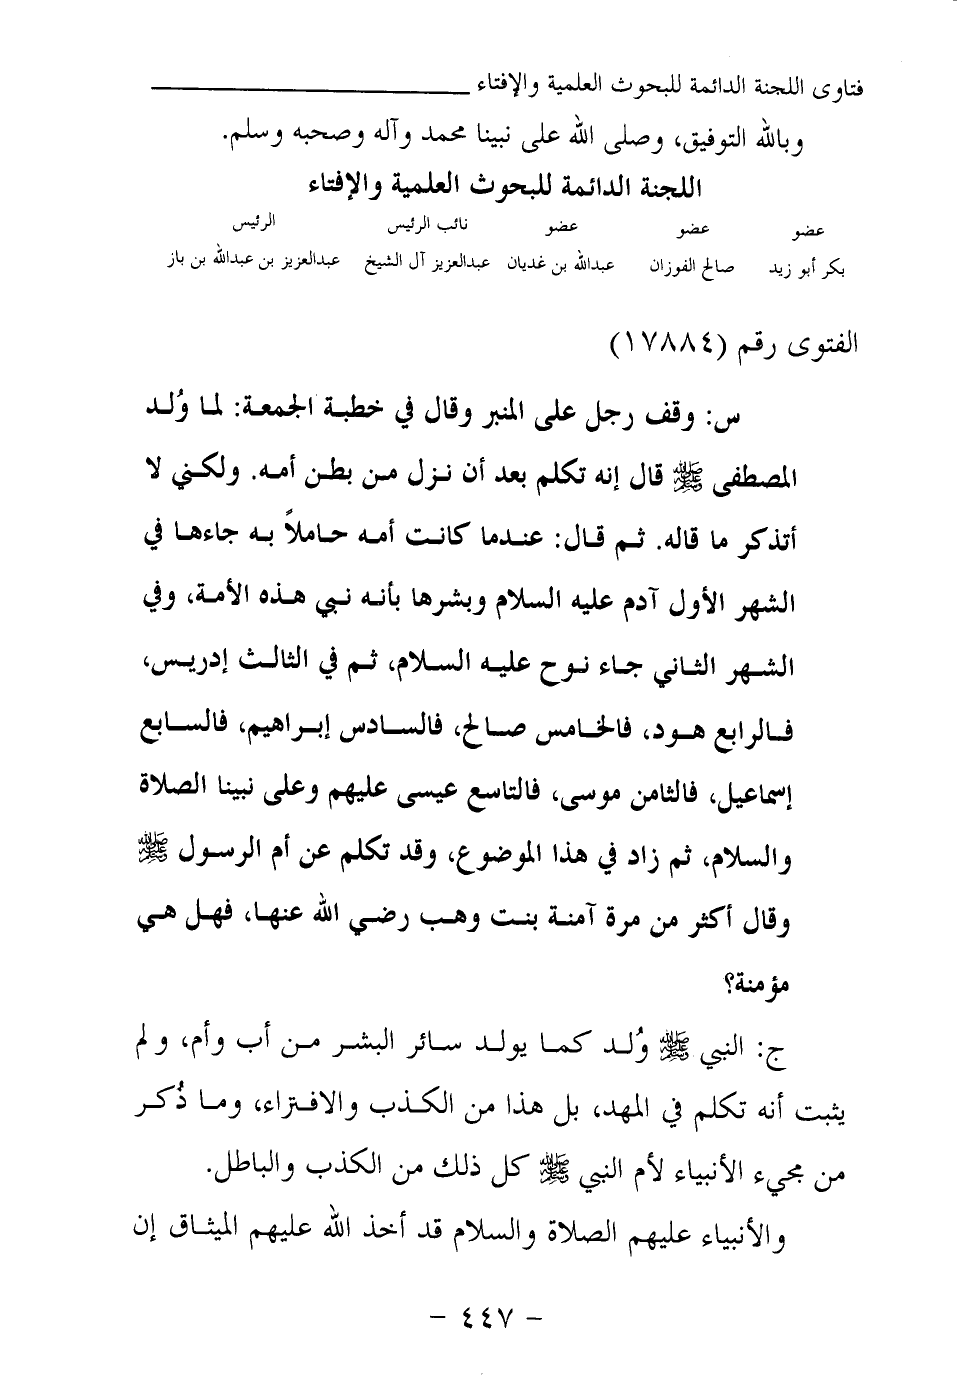 فتاوى اللجنة الدائمة للبحوث العلمية والإفتاء
وبالله التوفيق، وصلى الله على نبينا محمد وآله وصحبه وسلم.
اللجنة الدائمة للبحوث العلمية والإفتاء
عضو عضو عضو نائب الرئيس الرئيس
بكر أبو زيد صالح الفوزان عبدالله بن غديان عبدالعزيز آل الشيخ عبدالعزيز بن عبدالله بن باز
الفتوى رقم (١٧٨٨٤)
س: وقف رجل على المنبر وقال في خطبة الجمعة: لما وُلد
المصطفى ﷺ قال إنه تكلم بعد أن نزل من بطن أمه. ولكني لا
أتذكر ما قاله. ثم قال: عندما كانت أمه حاملاً به جاءها في
الشهر الأول آدم عليه السلام وبشرها بأنه نبي هذه الأمة، وفي
الشهر الثاني جاء نوح عليه السلام، ثم في الثالث إدريس،
فالرابع هود، فالخامس صالح، فالسادس إبراهيم، فالسابع
إسماعيل، فالثامن موسى، فالتاسع عيسى عليهم وعلى نبينا الصلاة
والسلام، ثم زاد في هذا الموضوع، وقد تكلم عن أم الرسول ﷺ
وقال أكثر من مرة آمنة بنت وهب رضي الله عنها، فهل هي
مؤمنة؟
ج: النبي ﷺ وُلد كما يولد سائر البشر من أب وأم، ولم
يثبت أنه تكلم في المهد، بل هذا من الكذب والافتراء، وما ذُكر
من مجيء الأنبياء لأم النبي ﷺ كل ذلك من الكذب والباطل.
والأنبياء عليهم الصلاة والسلام قد أخذ الله عليهم الميثاق إن
- ٤٤٧ -